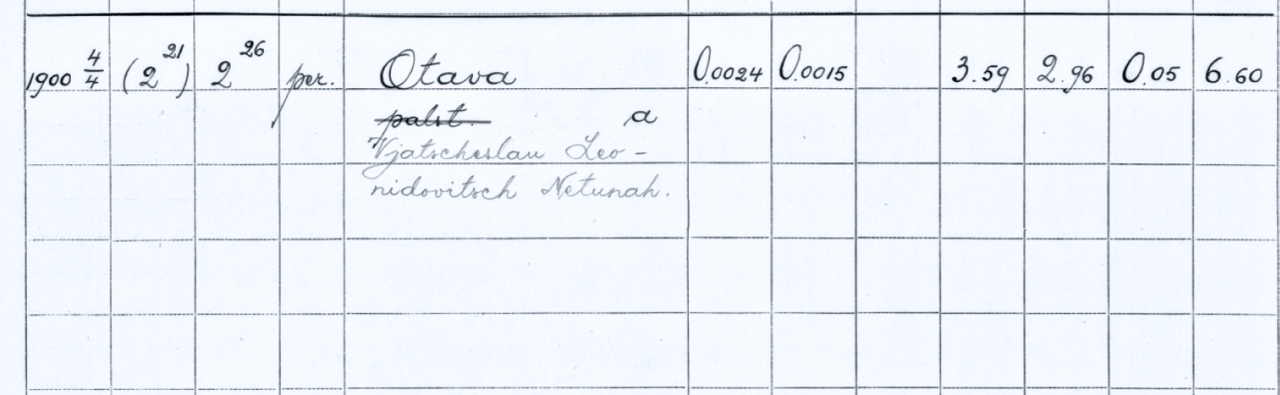 1900 4/4 (2 21) 2 26 per. Otava 0.0024 0.0015 3.59 2.96 0.05 6.60
palst. a
Vjatscheslau Leo-
nidovitsch Netunah.